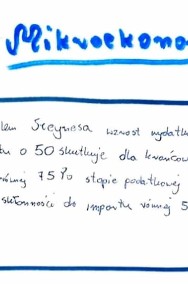 Mikroekono
lem Sreynesa wzrost wydatkó
tu o 50 skutkuje dla krańcow
równej 75% stopie podatkowej
skłonności do importu równej 5